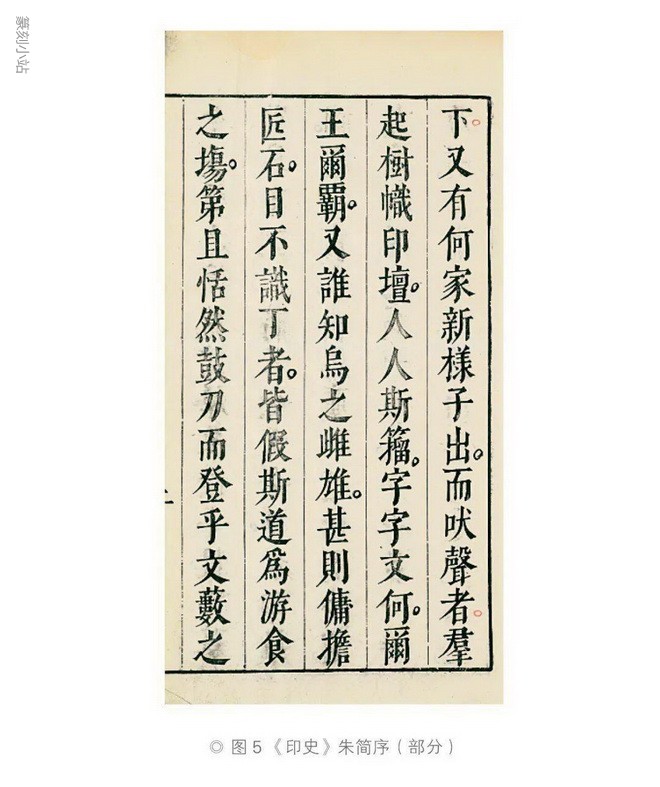 篆刻小站
下又有何家新樣子出。而吠聲者羣
起樹幟印壇。人人斯籀。字字文何。爾
王爾霸。又誰知烏之雌雄。甚則傭擔
匠石。目不識丁者。皆假斯道爲游食
之塲。第且恬然鼓刀而登乎文藪之
◎ 图 5 《 印史 》 朱简序（ 部分 ）